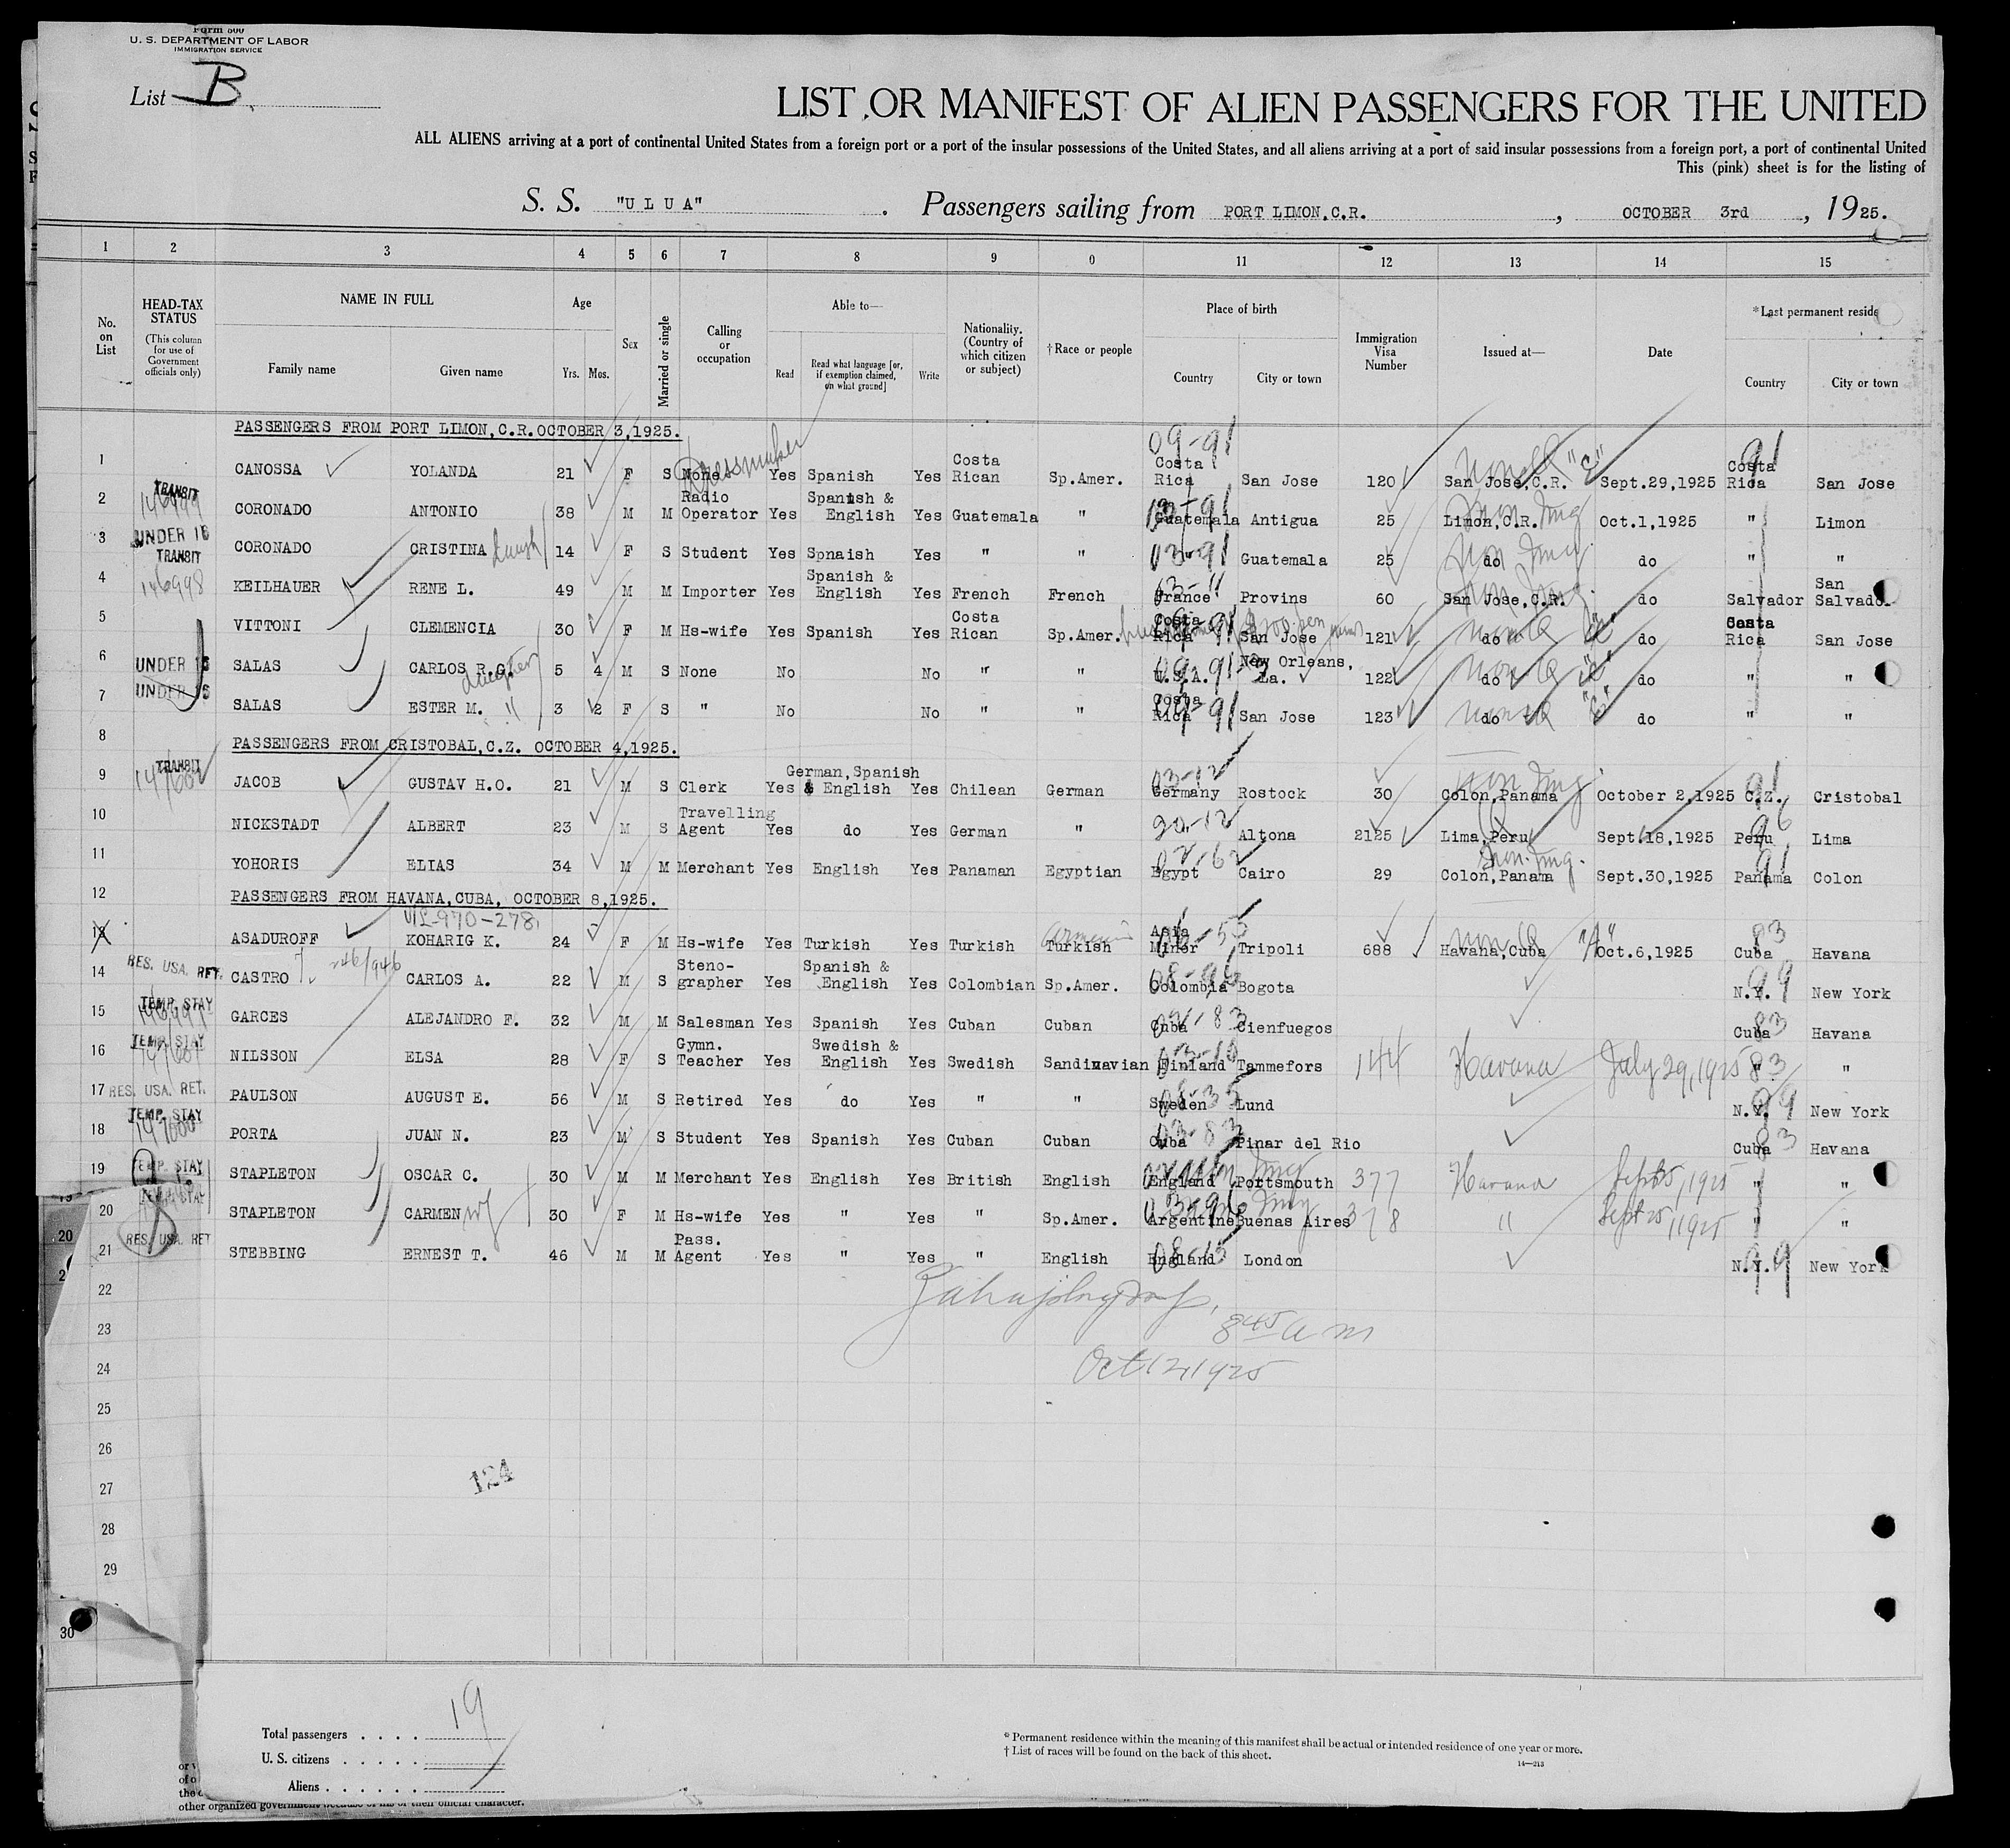 Form 500
U. S. DEPARTMENT OF LABOR
IMMIGRATION SERVICE
List B.
LIST OR MANIFEST OF ALIEN PASSENGERS FOR THE UNITED
ALL ALIENS arriving at a port of continental United States from a foreign port or a port of the insular possessions of the United States, and all aliens arriving at a port of said insular possessions from a foreign port, a port of continental United
This (pink) sheet is for the listing of
S. S. "U L U A" . Passengers sailing from PORT LIMON,C.R. , OCTOBER 3rd , 1925.
1 2 3 4 5 6 7 8 9 0 11 12 13 14 15
No. on List
HEAD-TAX STATUS
(This column for use of Government officials only)
NAME IN FULL
Family name Given name
Age
Yrs. Mos.
Sex
Married or single
Calling or occupation
Able to—
Read Read what language [or, if exemption claimed, on what ground] Write
Nationality. (Country of which citizen or subject)
†Race or people
Place of birth
Country City or town
Immigration Visa Number
Issued at—
Date
*Last permanent reside
Country City or town
PASSENGERS FROM PORT LIMON,C.R.OCTOBER 3,1925.
1 CANOSSA YOLANDA 21 F S None Dressmaker Yes Spanish Yes Costa Rican Sp.Amer. 09-91 Costa Rica San Jose 120 San Jose,C.R. Sept.29,1925 91 Costa Rica San Jose
2 TRANSIT 146999 CORONADO ANTONIO 38 M M Radio Operator Yes Spanish & English Yes Guatemala " Guatemala Antigua 25 Limon,C.R. Oct.1,1925 " Limon
3 UNDER 16 TRANSIT CORONADO CRISTINA daugh 14 F S Student Yes Spnaish Yes " " 03-91 Guatemala 25 do do " "
4 146998 KEILHAUER RENE L. 49 M M Importer Yes Spanish & English Yes French French 03-11 France Provins 60 San Jose,C.R. do Salvador San Salvador
5 VITTONI CLEMENCIA 30 F M Hs-wife Yes Spanish Yes Costa Rican Sp.Amer. Costa Rica San Jose 121 do do Costa Rica San Jose
6 UNDER 16 SALAS CARLOS R.G. 5 4 M S None No No " " U.S.A. New Orleans, La. 122 do do " "
7 UNDER 16 SALAS ESTER M. " 3 2 F S " No No " " Costa Rica San Jose 123 do do " "
8 PASSENGERS FROM CRISTOBAL,C.Z. OCTOBER 4,1925.
9 TRANSIT JACOB GUSTAV H.O. 21 M S Clerk Yes German,Spanish & English Yes Chilean German 03-12 Germany Rostock 30 Colon,Panama October 2,1925 91 C.Z. Cristobal
10 NICKSTADT ALBERT 23 M S Travelling Agent Yes do Yes German " 20-12 " Altona 2125 Lima,Peru Sept.18,1925 96 Peru Lima
11 YOHORIS ELIAS 34 M M Merchant Yes English Yes Panaman Egyptian Egypt Cairo 29 Non. Img. Colon,Panama Sept.30,1925 91 Panama Colon
12 PASSENGERS FROM HAVANA,CUBA, OCTOBER 8,1925.
13 ASADUROFF VL-970-278 KOHARIG K. 24 F M Hs-wife Yes Turkish Yes Turkish Armenian Turkish Asia Minor Tripoli 688 Havana,Cuba "A" Oct.6,1925 83 Cuba Havana
14 RES. USA. RET. CASTRO CARLOS A. 22 M S Steno-grapher Yes Spanish & English Yes Colombian Sp.Amer. Colombia Bogota 99 N.Y. New York
15 TEMP. STAY GARCES ALEJANDRO F. 32 M M Salesman Yes Spanish Yes Cuban Cuban Cuba Cienfuegos 83 Cuba Havana
16 TEMP. STAY NILSSON ELSA 28 F S Gymn. Teacher Yes Swedish & English Yes Swedish Sandinavian Finland Tammefors 144 Havana July 29,1925 83 " "
17 RES. USA. RET. PAULSON AUGUST E. 56 M S Retired Yes do Yes " " Sweden Lund 99 N.Y. New York
18 TEMP. STAY PORTA JUAN N. 23 M S Student Yes Spanish Yes Cuban Cuban 03-83 Cuba Pinar del Rio 83 Cuba Havana
19 TEMP. STAY STAPLETON OSCAR C. 30 M M Merchant Yes English Yes British English England Portsmouth 377 Havana Sept 25,1925 " "
20 TEMP. STAY STAPLETON CARMEN wf 30 F M Hs-wife Yes " Yes " Sp.Amer. Argentine Buenas Aires 378 " Sept 25,1925 " "
21 RES. USA. RET STEBBING ERNEST T. 46 M M Pass. Agent Yes " Yes " English England London 99 N.Y. New York
22
8 45 a m
23
Oct 12, 1925
24
25
26
124
27
28
29
30
19
20
Total passengers . . . . 19
U. S. citizens . . . . .
Aliens . . . . . .
* Permanent residence within the meaning of this manifest shall be actual or intended residence of one year or more.
† List of races will be found on the back of this sheet.
14—213
other organized government because of his or their official character.